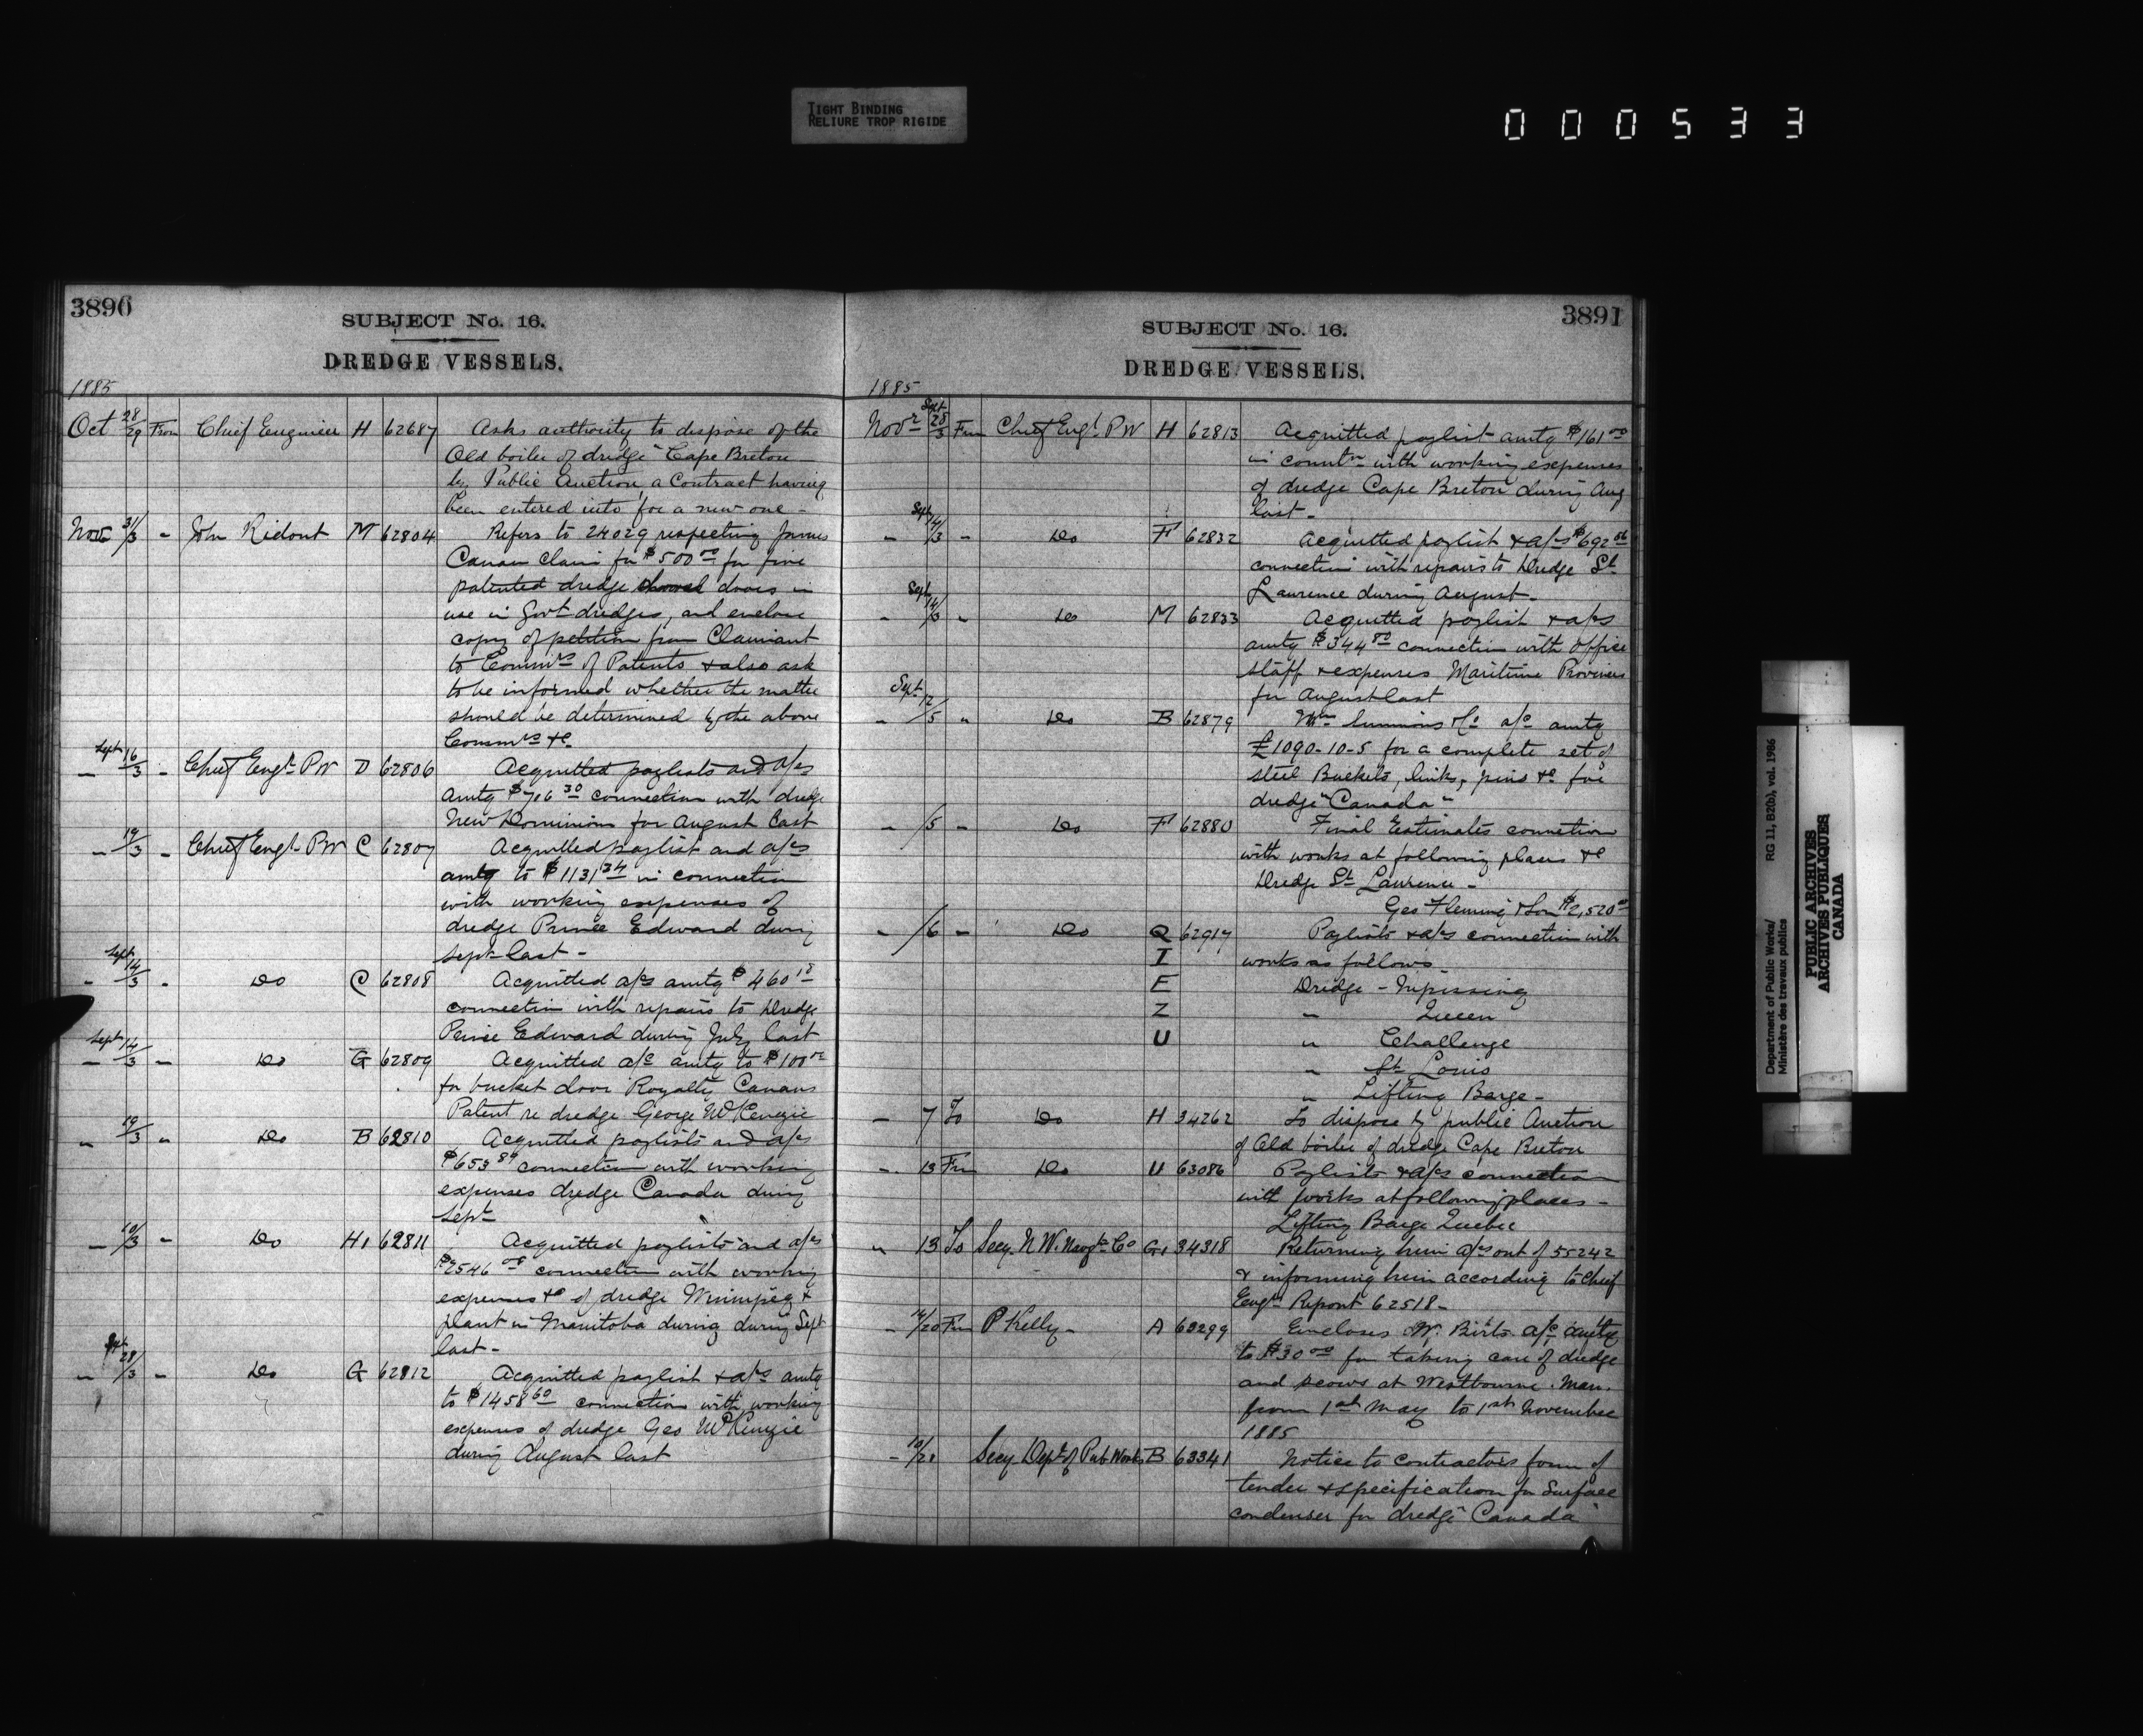 TIGHT BINDING
RELIURE TROP RIGIDE
000533
3890
SUBJECT No. 16.
DREDGE VESSELS.
1885
Oct 28/29 From Chief Engineer H 62687 Asks authority to dispose of the
Old boiler of dredge "Cape Breton
by Public Auction, a Contract having
been entered into for a new one -
Nov 31/3 - Jno Ridout M 62804 Refers to 24029 respecting James
Canan claim for $500.00 for five
patented dredge shovel doors in
use in Govt dredges, and enclose
copy of petition from Claimant
to Commrs of Patents & also ask
to be informed whether the matter
should be determined by the above
Commrs &c
- Sept 16/3 - Chief Engr PW D 62806 Acquitted paylists and a/cs
amtg $706 30 connection with dredge
New Dominion for August last
- 19/3 - Chief Engr PW C 62807 Acquitted paylist and a/cs
amtg to $1131 34 in connection
with working expenses of
dredge Prince Edward during
Sept last -
- Sept 14/3 - Do C 62808 Acquitted a/cs amtg $460 18
connection with repairs to Dredge
Prince Edward during July last
- Sept 14/3 - Do G 62809 Acquitted a/c amtg to $100 00
for bucket door Royalty, Canans
Patent re dredge George McKenzie
- 19/3 - Do B 62810 Acquitted paylists and a/cs
$653 89 connection with working
expenses dredge Canada during
Sept
- 19/3 - Do H1 62811 Acquitted paylists and a/cs
$2546 connection with working
expenses &c of dredge Winnipeg &
plant in Manitoba during during Sept
last -
- 28/3 - Do G 62812 Acquitted paylist & a/cs amtg
to $1458 60 connection with working
expenses of dredge Geo McKenzie
during August last
3891
SUBJECT No. 16.
DREDGE VESSELS.
1885
Novr Sept 28/3 Frm Chief Engr PW H 62813 Acquitted paylist amtg $161 00
in connectn with working expenses
of dredge Cape Breton during Aug
last -
- Sept 14/3 - Do F 62832 Acquitted paylist & a/cs $692 56
connection with repairs to Dredge St
Lawrence during August -
- Sept 14/3 - Do M 62833 Acquitted paylist & a/cs
amtg $344 80 connection with office
staff & expenses Maritime Provinces
for August last
- Sept 12/5 - Do B 62879 Wm Simmons & Co a/c amtg
£1090-10-5 for a complete set of
steel Buckets, links, pins &c for
dredge "Canada"
- /5 - Do F 62880 Final Estimates connection
with works at following places &c
Dredge St Laurence -
Geo Fleming & Son $2,520 00
- /6 - Do Q 62917 Paylists & a/cs connection with
I works as follows -
E Dredge - Nipissing
Z " Queen
U " Challenge
" St Louis
" Lifting Barge -
- 7 To Do H 34262 To dispose by public Auction
of Old boiler of dredge Cape Breton
- 13 Frm Do U 63086 Paylists & a/cs connection
with works at following places -
Lifting Barge Quebec
" 13 To Secy. N.W. Navgtn Co G1 34318 Returning him a/cs out of 55242
& informing him according to Chief
Engrs Report 62518 -
- 14/20 Frm P Kelly - A 63299 Encloses W. Birts a/c amtg
to $30 00 for taking care of dredge
and scows at Westbourne. Man.
from 1st May to 1st November
1885
- 10/21 Secy Dept of Pub Works B 63341 Notice to contractors form of
tender & specification for Surface
condenser for dredge "Canada"
Department of Public Works/ RG 11, B2(b), vol. 1986
Ministère des travaux publics
PUBLIC ARCHIVES
ARCHIVES PUBLIQUES
CANADA